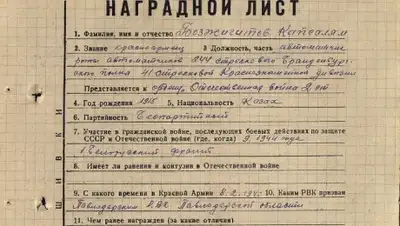 НАГРАДНОЙ ЛИСТ
1. Фамилия, имя и отчество Бозжигитов Капсалям
2. Звание красноармеец 3 Должность, часть автоматчик
роты автоматчиков 244 стрелкового Бранденбург-
ского полка 41 стрелковой Краснознаменной дивизии
Представляется к ордену, Отечественная война 2 ст
4. Год рождения 1915 5. Национальность Казах
6. Партийность Беспартийный
7. Участие в гражданской войне, послелующих боевых действиях по защите
СССР и Отечественной войне (где, когда) 9.1944 года
1 Белорусский фронт
8. Имеет ли ранения и контузии в Отечественной войне
9. С какого времени в Красной Армии 10. Каким РВК призван
Павлодарским РВК Павлодарской области
11. Чем ранее награжден (за какие отличия)
ШИВКИ